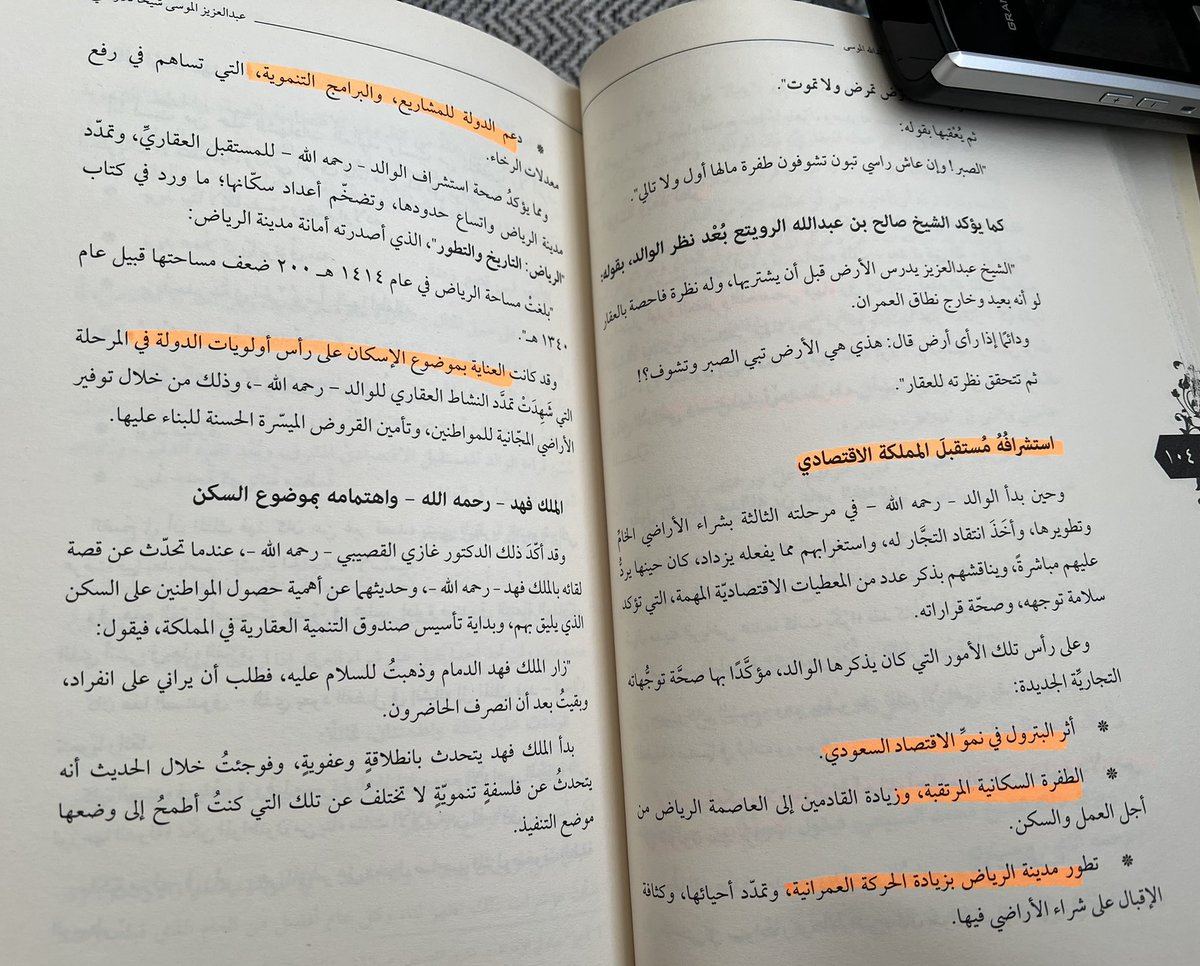 عبدالله الموسى
تمرض ولا تموت".
ثم يُعْقبها بقوله:
"الصبر! وإن عاش راسي تبون تشوفون طفرة مالها أول ولا تالي".
كما يؤكد الشيخ صالح بن عبدالله الرويتع بُعْد نظر الوالد، بقوله:
"الشيخ عبدالعزيز يدرس الأرض قبل أن يشتريها، وله نظرة فاحصة بالعقار
لو أنه بعيد وخارج نطاق العمران.
ودائمًا إذا رأى أرض قال: هذي هي الأرض تبي الصبر وتشوف؟!
ثم تتحقق نظرته للعقار".
استشرافُهُ مُستقبلَ المملكة الاقتصادي
وحين بدأ الوالد - رحمه الله - في مرحلته الثالثة بشراء الأراضي الخامّ
وتطويرها، وأخَذَ انتقاد التجَّار له، واستغرابهم مما يفعله يزداد، كان حينها يردُّ
عليهم مباشرةً، ويناقشهم بذكر عدد من المعطيات الاقتصاديّة المهمة، التي تؤكد
سلامة توجهه، وصحّة قراراته.
وعلى رأس تلك الأمور التي كان يذكرها الوالد، مؤكَّدًا بها صحَّة توجُّهاته
التجاريَّة الجديدة:
* أثر البترول في نموِّ الاقتصاد السعودي.
* الطفرة السكانية المرتقبة، وزيادة القادمين إلى العاصمة الرياض من
أجل العمل والسكن.
* تطور مدينة الرياض بزيادة الحركة العمرانية، وتمدّد أحيائها، وكثافة
الإقبال على شراء الأراضي فيها.
١٠٤
GRAN
عبدالعزيز الموسى
* دعم الدولة للمشاريع، والبرامج التنموية، التي تساهم في رفع
معدلات الرخاء.
ومما يؤكدُ صحة استشراف الوالد - رحمه الله - للمستقبل العقاريِّ، وتمدّد
مدينة الرياض واتساع حدودها، وتضخّم أعداد سكّانها؛ ما ورد في كتاب
"الرياض: التاريخ والتطور"، الذي أصدرته أمانة مدينة الرياض:
"بلغتْ مساحة الرياض في عام ١٤١٤ هـ ٢٠٠ ضعف مساحتها قبيل عام
١٣٤٠ هـ".
وقد كانت العناية بموضوع الإسكان على رأس أولويات الدولة في المرحلة
التي شَهِدَتْ تمدَّد النشاط العقاري للوالد - رحمه الله -، وذلك من خلال توفير
الأراضي المجّانية للمواطنين، وتأمين القروض الميسّرة الحسنة للبناء عليها.
الملك فهد - رحمه الله - واهتمامه بموضوع السكن
وقد أكّدَ ذلك الدكتور غازي القصيبي - رحمه الله -، عندما تحدّث عن قصة
لقائه بالملك فهد - رحمه الله -، وحديثهما عن أهمية حصول المواطنين على السكن
الذي يليق بهم، وبداية تأسيس صندوق التنمية العقارية في المملكة، فيقول:
"زار الملك فهد الدمام وذهبتُ للسلام عليه، فطلب أن يراني على انفراد،
وبقيتُ بعد أن انصرف الحاضرون.
بدأ الملك فهد يتحدث بانطلاقةٍ وعفويةٍ، وفوجئتُ خلال الحديث أنه
يتحدثُ عن فلسفةٍ تنمويّةٍ لا تختلفُ عن تلك التي كنتُ أطمحُ إلى وضعها
موضع التنفيذ.